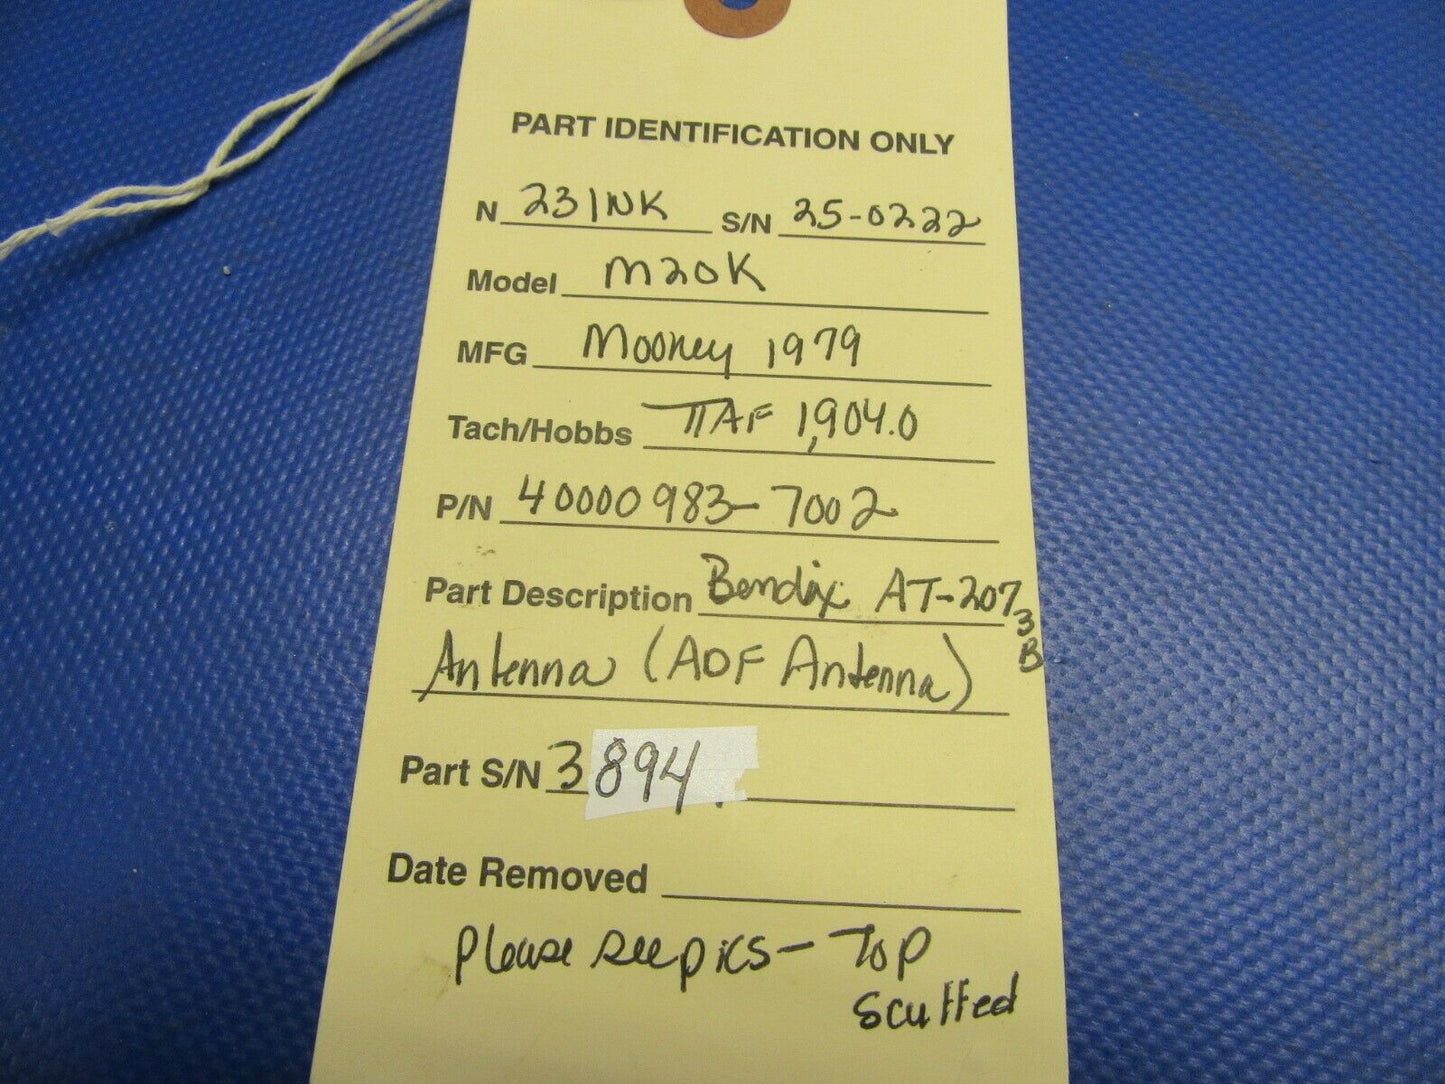 PART IDENTIFICATION ONLY
N 231NK S/N 25-0222
Model M20K
MFG Mooney 1979
Tach/Hobbs TTAF 1,904.0
P/N 40000983-7002
Part Description Bendix AT-2073B
Antenna (ADF Antenna)
Part S/N 3894
Date Removed
Please see pics - Top
Scuffed